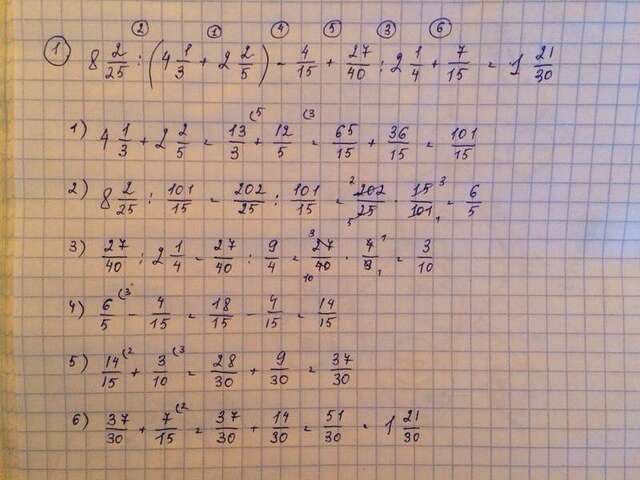 ② ① ④ ⑤ ③ ⑥
① 8 2/25 : (4 1/3 + 2 2/5) - 4/15 + 27/40 : 2 1/4 + 7/15 = 1 21/30
1) 4 1/3 + 2 2/5 = 13/3 (5 + 12/5 (3 = 65/15 + 36/15 = 101/15
2) 8 2/25 : 101/15 = 202/25 : 101/15 = 2 202/25 5 · 15/101 3 1 = 6/5
3) 27/40 : 2 1/4 = 27/40 : 9/4 = 3 27/40 10 · 4/9 1 1 = 3/10
4) 6/5 (3 - 4/15 = 18/15 - 4/15 = 14/15
5) 14/15 (2 + 3/10 (3 = 28/30 + 9/30 = 37/30
6) 37/30 + 7/15 (2 = 37/30 + 14/30 = 51/30 = 1 21/30